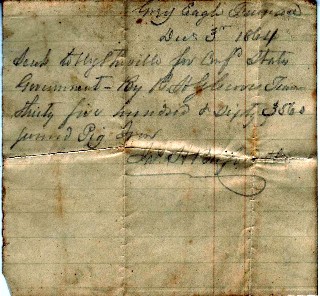 Grey Eagle Furnace
Dec 3rd 1864
Sent to Wytheville for Conf States
Government - By
Thirty five hundred & Sixty 3560
pound Pig Iron